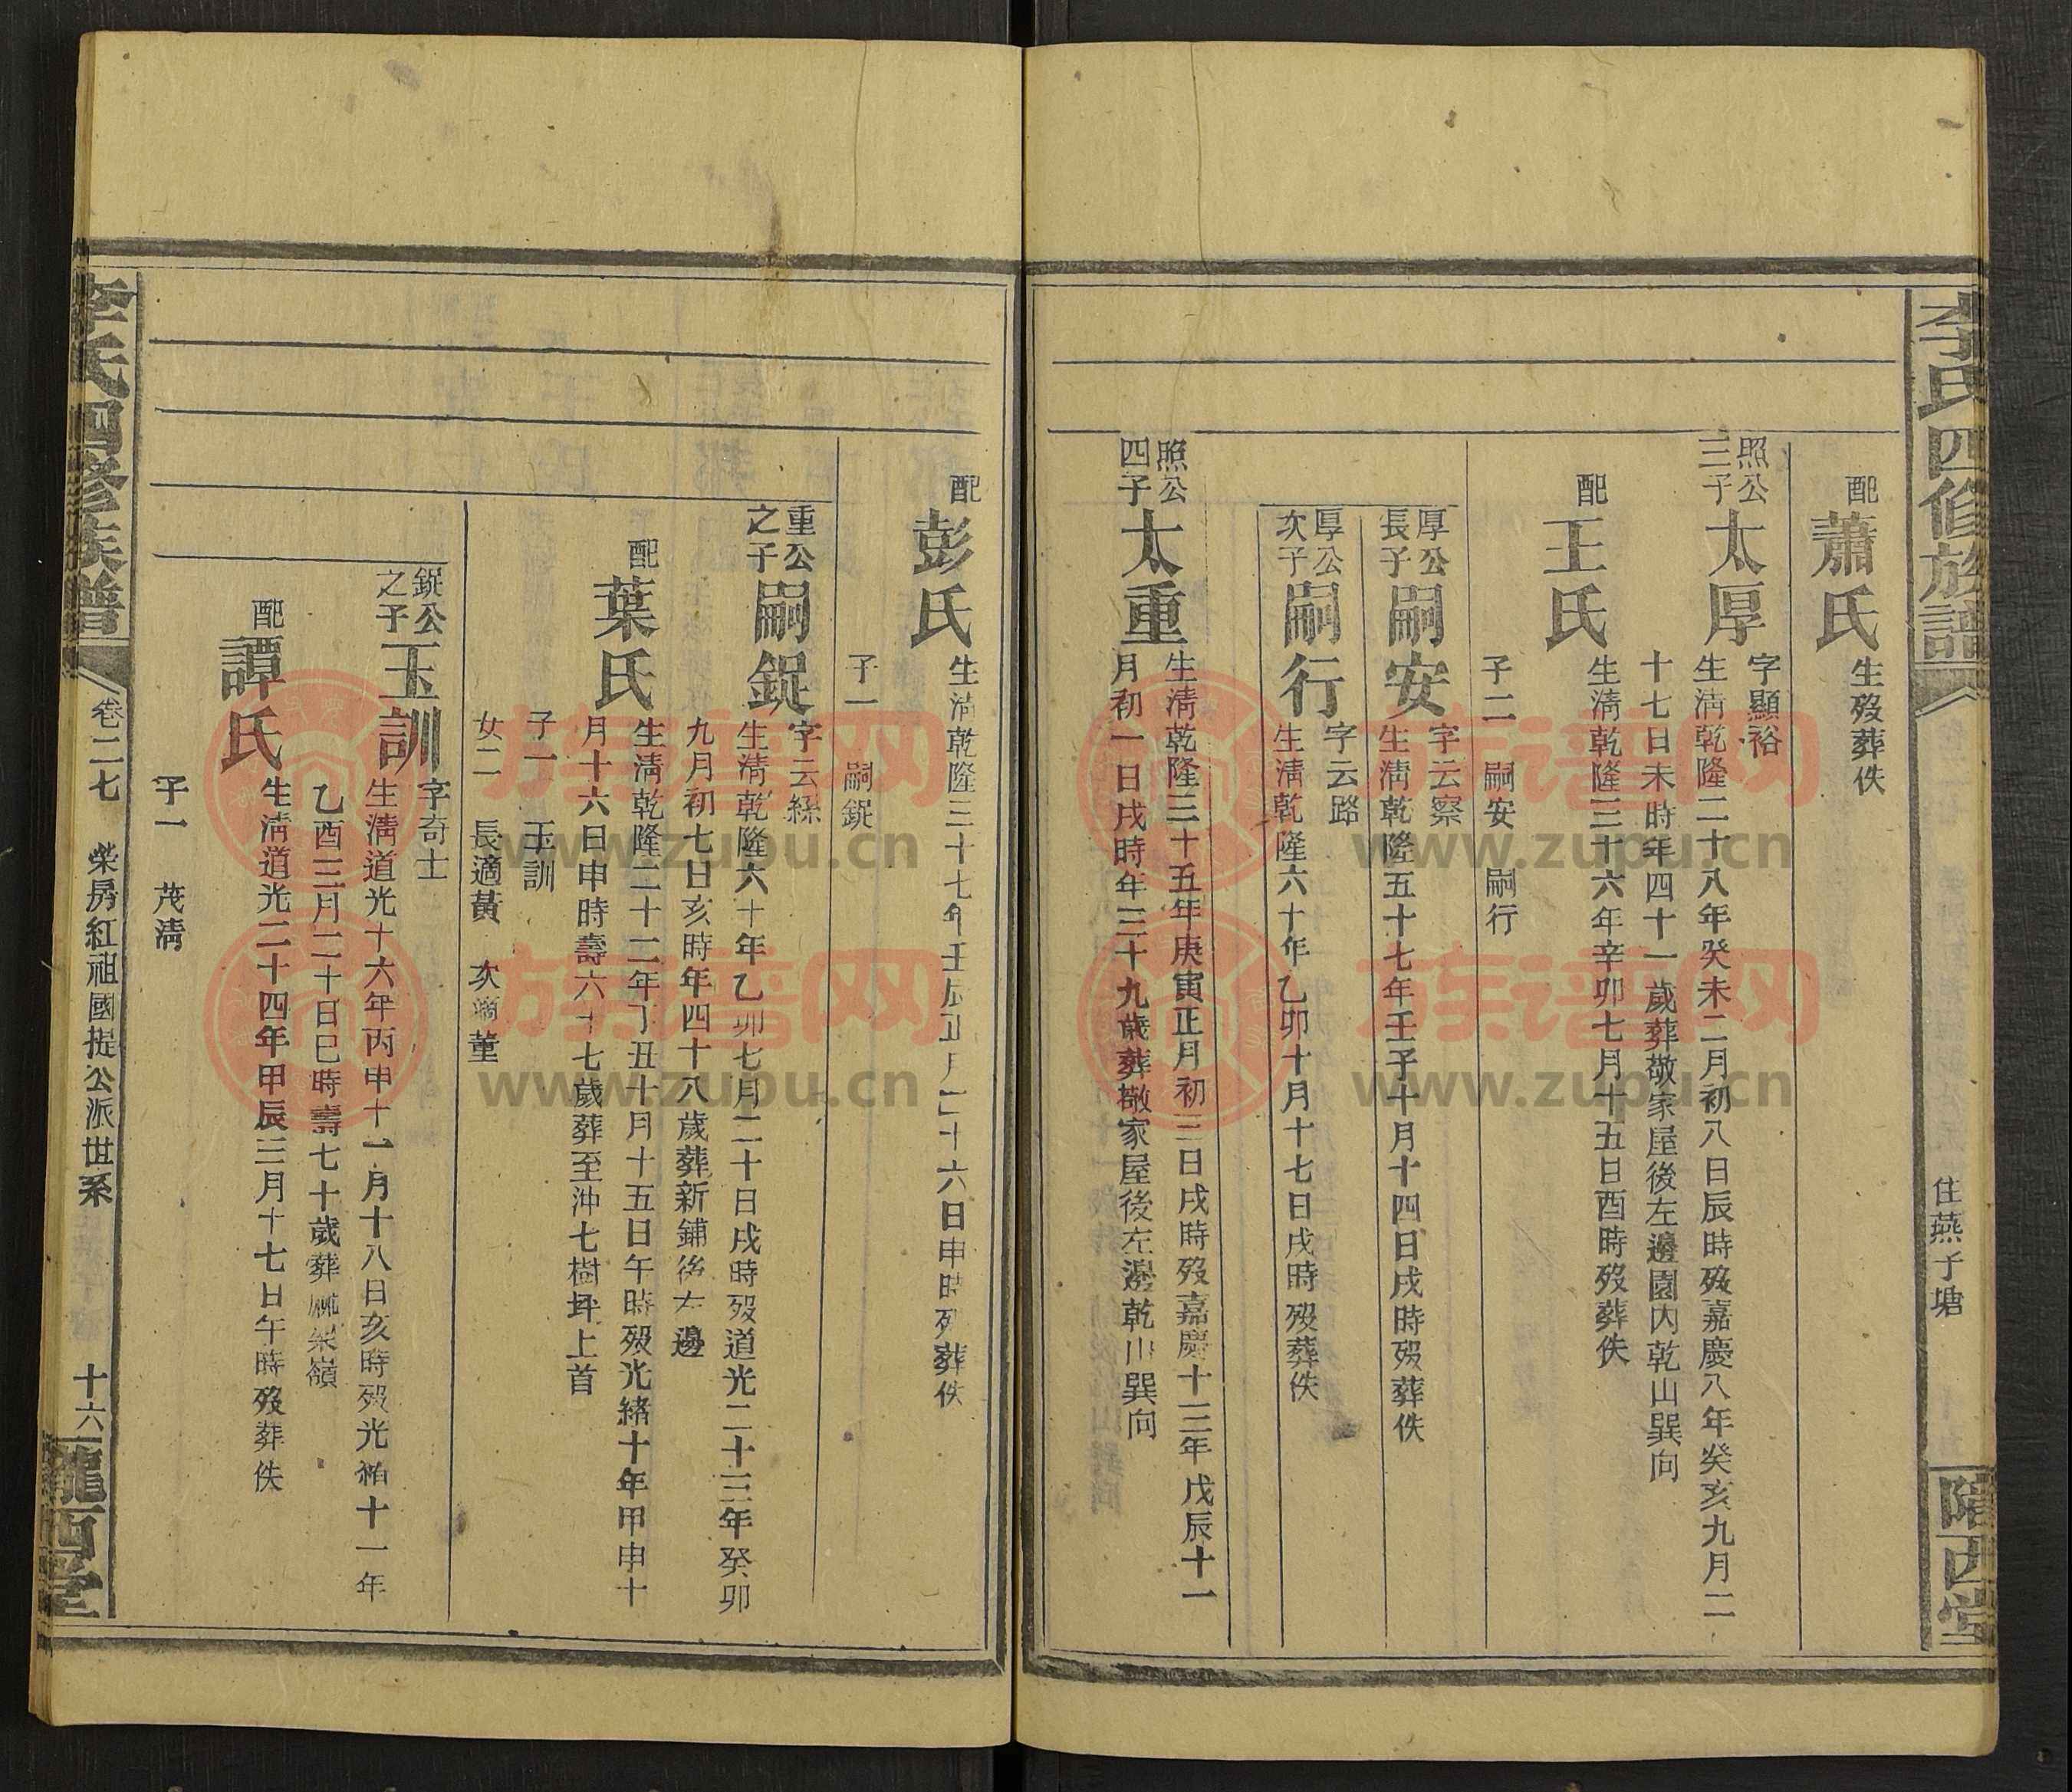 李氏四修族譜
住燕子塘
隴西堂
配蕭氏生歿葬佚
照公三子太厚字顯裕
生淸乾隆二十八年癸未二月初八日辰時歿嘉慶八年癸亥九月二
十七日未時年四十一歲葬敬家屋後左邊園內乾山巽向
配王氏生淸乾隆三十六年辛卯七月十五日酉時歿葬佚
子二 嗣安 嗣行
厚公長子嗣安字云察
生淸乾隆五十七年壬子十月十四日戌時歿葬佚
厚公次子嗣行字云路
生淸乾隆六十年乙卯十月十七日戌時歿葬佚
照公四子太重生淸乾隆三十五年庚寅正月初三日戌時歿嘉慶十三年戊辰十一
月初一日戌時年三十九歲葬敬家屋後左邊乾山巽向
配彭氏生淸乾隆三十七年壬辰正月二十六日申時歿葬佚
子一 嗣鋜
重公之子嗣鋜字云縣
生淸乾隆六十年乙卯七月二十日戌時歿道光二十三年癸卯
九月初七日亥時年四十八歲葬新鋪後左邊
配葉氏生淸乾隆二十二年丁丑十月十五日午時歿光緒十年甲申十
月十六日申時壽六十七歲葬至沖七樹坪上首
子一 玉訓
女二 長適黃 次適董
鋜公之子玉訓字奇士
生淸道光十六年丙申十一月十八日亥時歿光緒十一年
乙酉三月二十日巳時壽七十歲葬嶺
配譚氏生淸道光二十四年甲辰三月十七日午時歿葬佚
子一 茂淸
李氏四修族譜
卷二七 榮房紅祖國提公派世系 十六
隴西堂
族谱网
www.zupu.cn
族谱网
www.zupu.cn
族谱网
www.zupu.cn
族谱网
www.zupu.cn